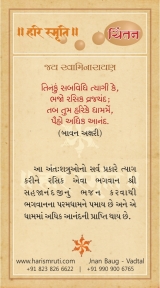 ॥ હરિ સ્મૃતિ ॥
ચિંતન
જય સ્વામિનારાયણ
તિનકું સબવિધિ ત્યાગી કે,
ભજો રસિક વ્રજચંદ;
તબ તુમ હરિકે ધામમેં,
પૈહો અધિક આનંદ.
(બાવન અક્ષરી)
આ અંતઃશત્રુઓનો સર્વ પ્રકારે ત્યાગ
કરીને રસિક એવા ભગવાન શ્રી
સહજાનંદજીનું ભજન કરવાથી
ભગવાનના પરમધામને પમાય છે અને એ
ધામમાં અધિક આનંદની પ્રાપ્તિ થાય છે.
www.harismruti.com
Jnan Baug - Vadtal
+91 823 826 6622 | +91 990 900 6765